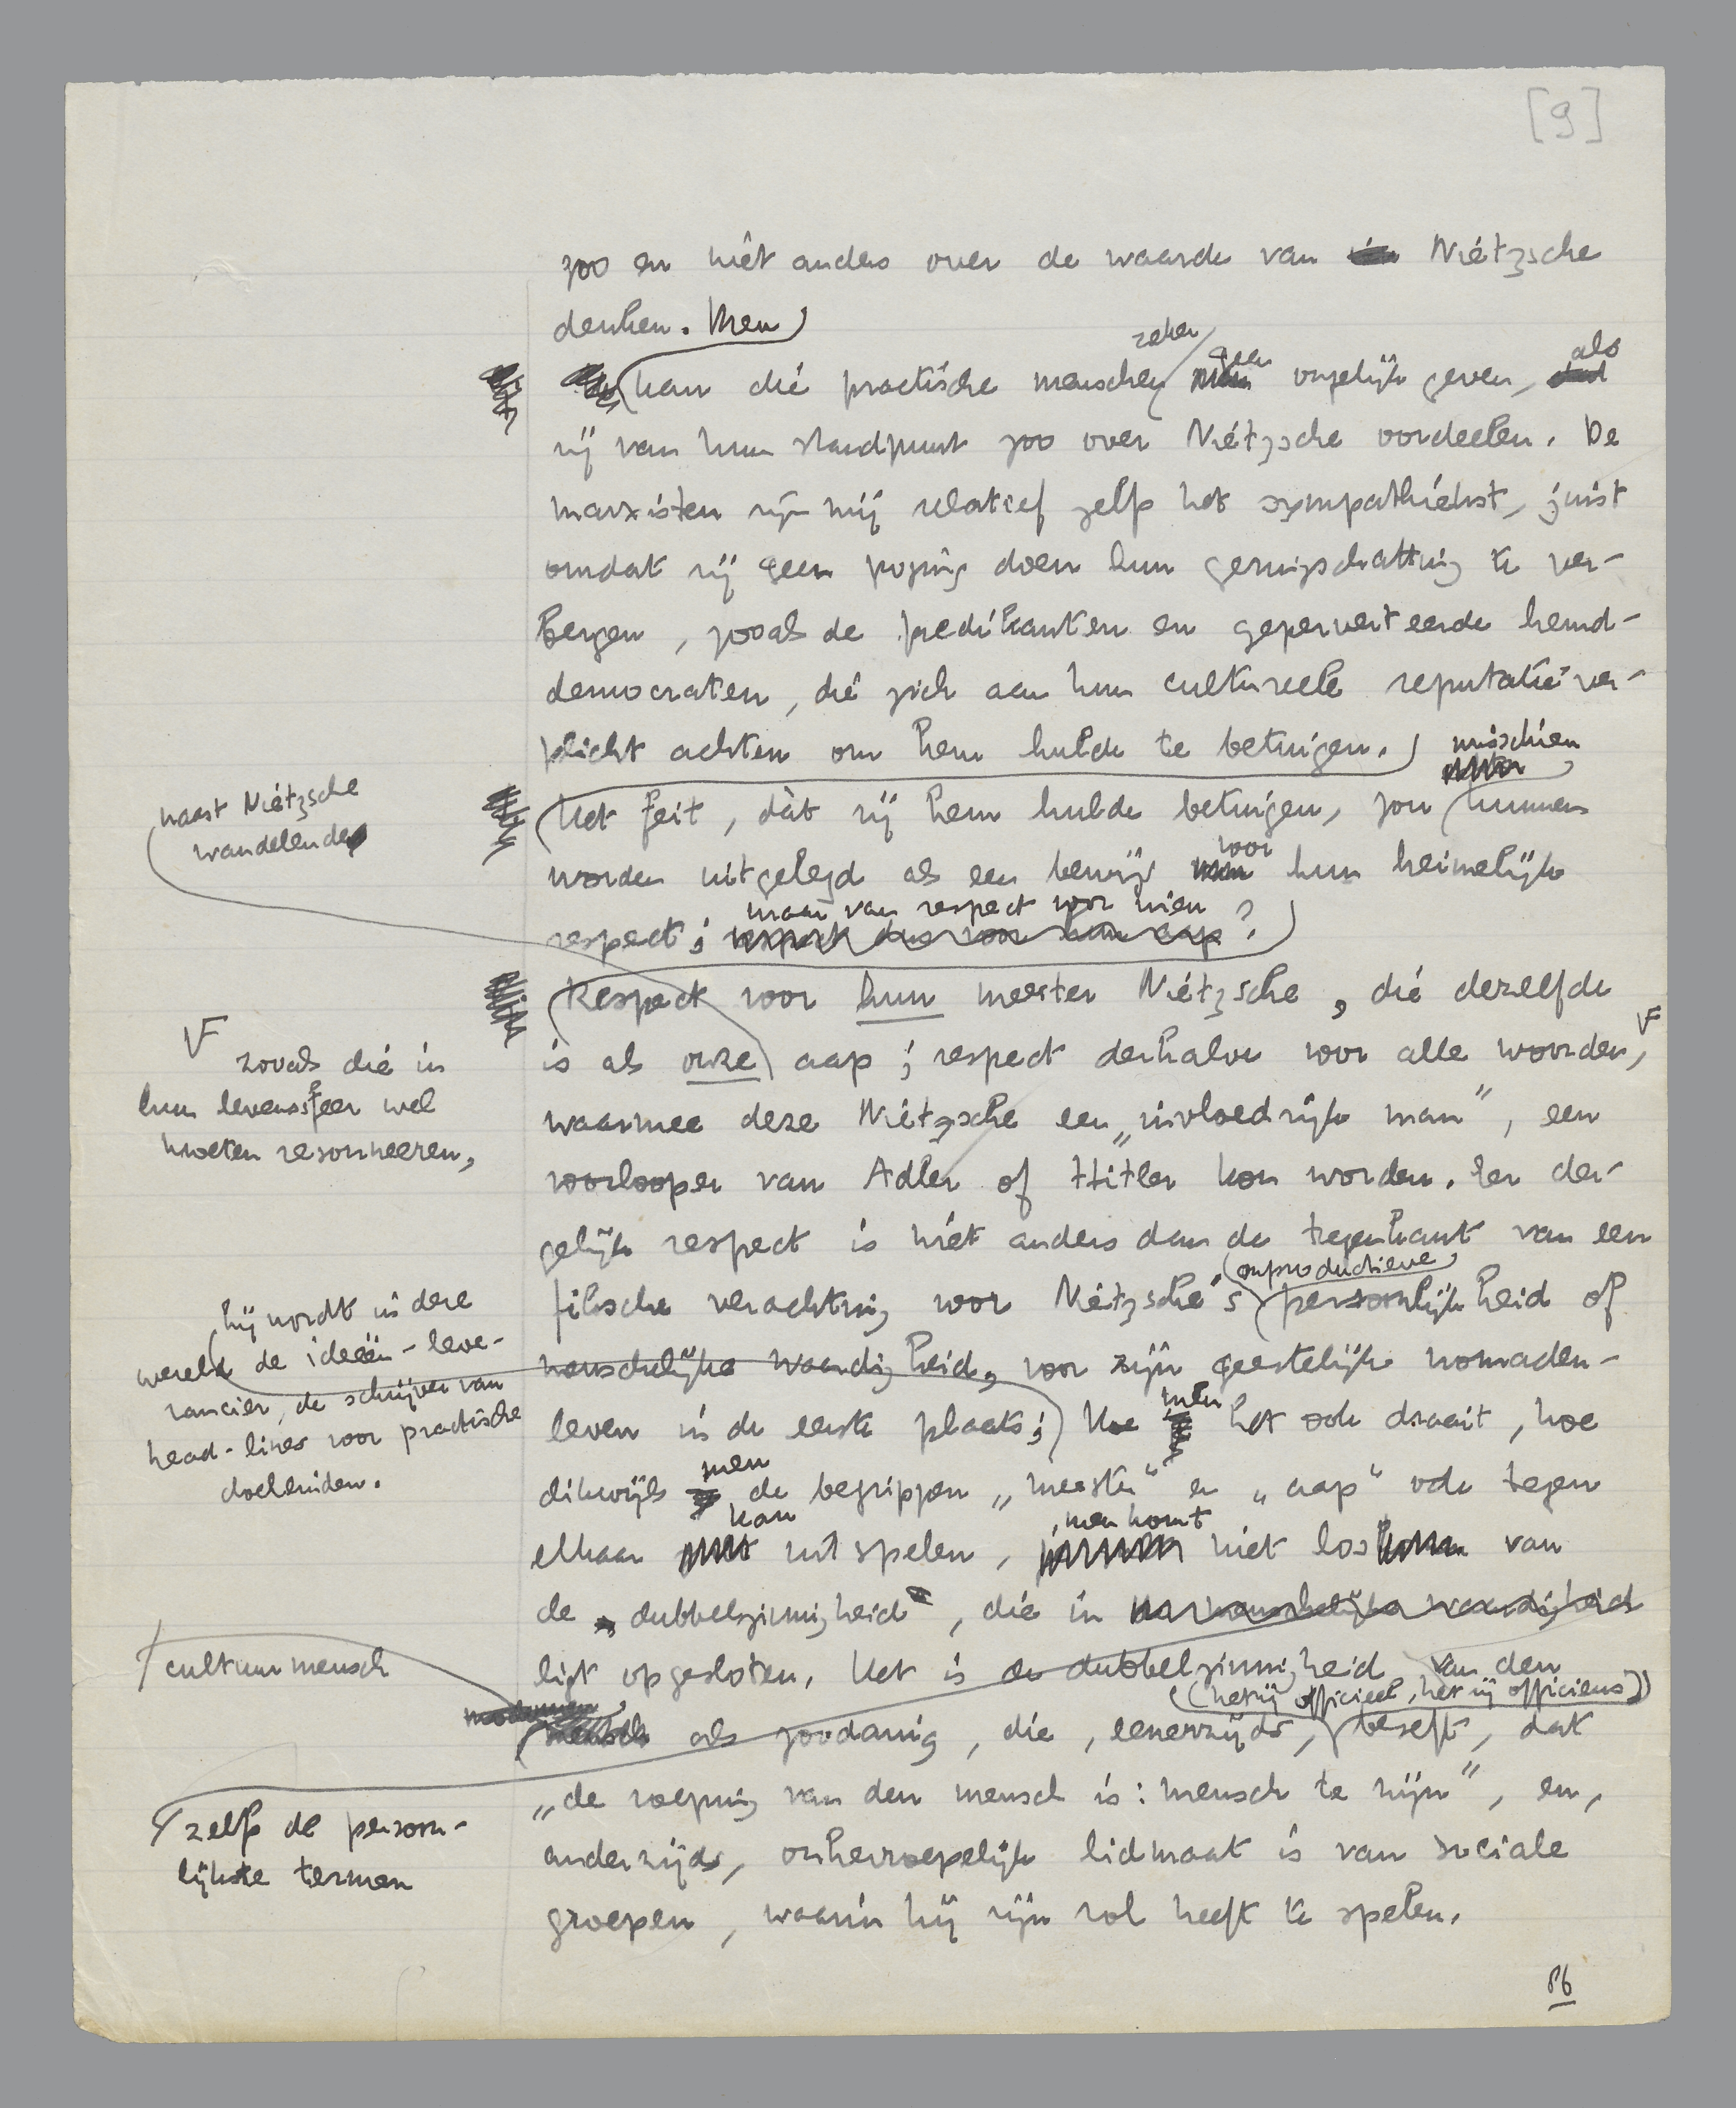 [9]
zoo en niet anders over de waarde van Nietzsche
denken. Men
zeker
kan die practische menschen geen ongelijk geven, als
zij van hun standpunt zoo over Nietzsche oordeelen. De
marxisten zijn mij relatief zelfs het sympathiekst, juist
omdat zij geen poging doen hun geringschatting te ver-
bergen, zooals de predikanten en geperverteerde hemd-
democraten, die zich aan hun cultureele reputatie ver-
plicht achten om hem hulde te betuigen.
misschien
Het feit, dàt zij hem hulde betuigen, zou kunnen
naast Nietzsche
wandelende
worden uitgelegd als een bewijs voor hun heimelijk
maar van respect voor wien
respect; respect dus voor hun aap?
Respect voor hun meester Nietzsche, die dezelfde
is als onze aap; respect derhalve voor alle woorden,
zooals die in
hun levenssfeer wel
moeten resonneeren,
waarmee deze Nietzsche een „invloedrijk man”, een
voorlooper van Adler of Hitler kon worden. Een der-
gelijk respect is niet anders dan de tegenkant van een
onproductieve
filosche verachting voor Nietzsche's persoonlijkheid of
menschelijke waardigheid, voor zijn geestelijk nomaden-
hij wordt in deze
wereld de ideeën-leve-
rancier, de schrijver van
head-lines voor practische
doeleinden.
leven in de eerste plaats; Hoe men het ook draait, hoe
dikwijls men de begrippen „meester” en „aap” ook tegen
elkaar kan uitspelen, men komt niet los van
de dubbelzinnigheid, die in menschelijke waardigheid
ligt opgesloten. Het is de dubbelzinnigheid van den
cultuurmensch
(hetzij officieel, hetzij officieus)
modernen mensch als zoodanig, die, eenerzijds, beseft, dat
„de roeping van den mensch is: mensch te zijn”, en,
zelfs de persoon-
lijkste termen
anderzijds, onherroepelijk lidmaat is van sociale
groepen, waarin hij zijn rol heeft te spelen.
86